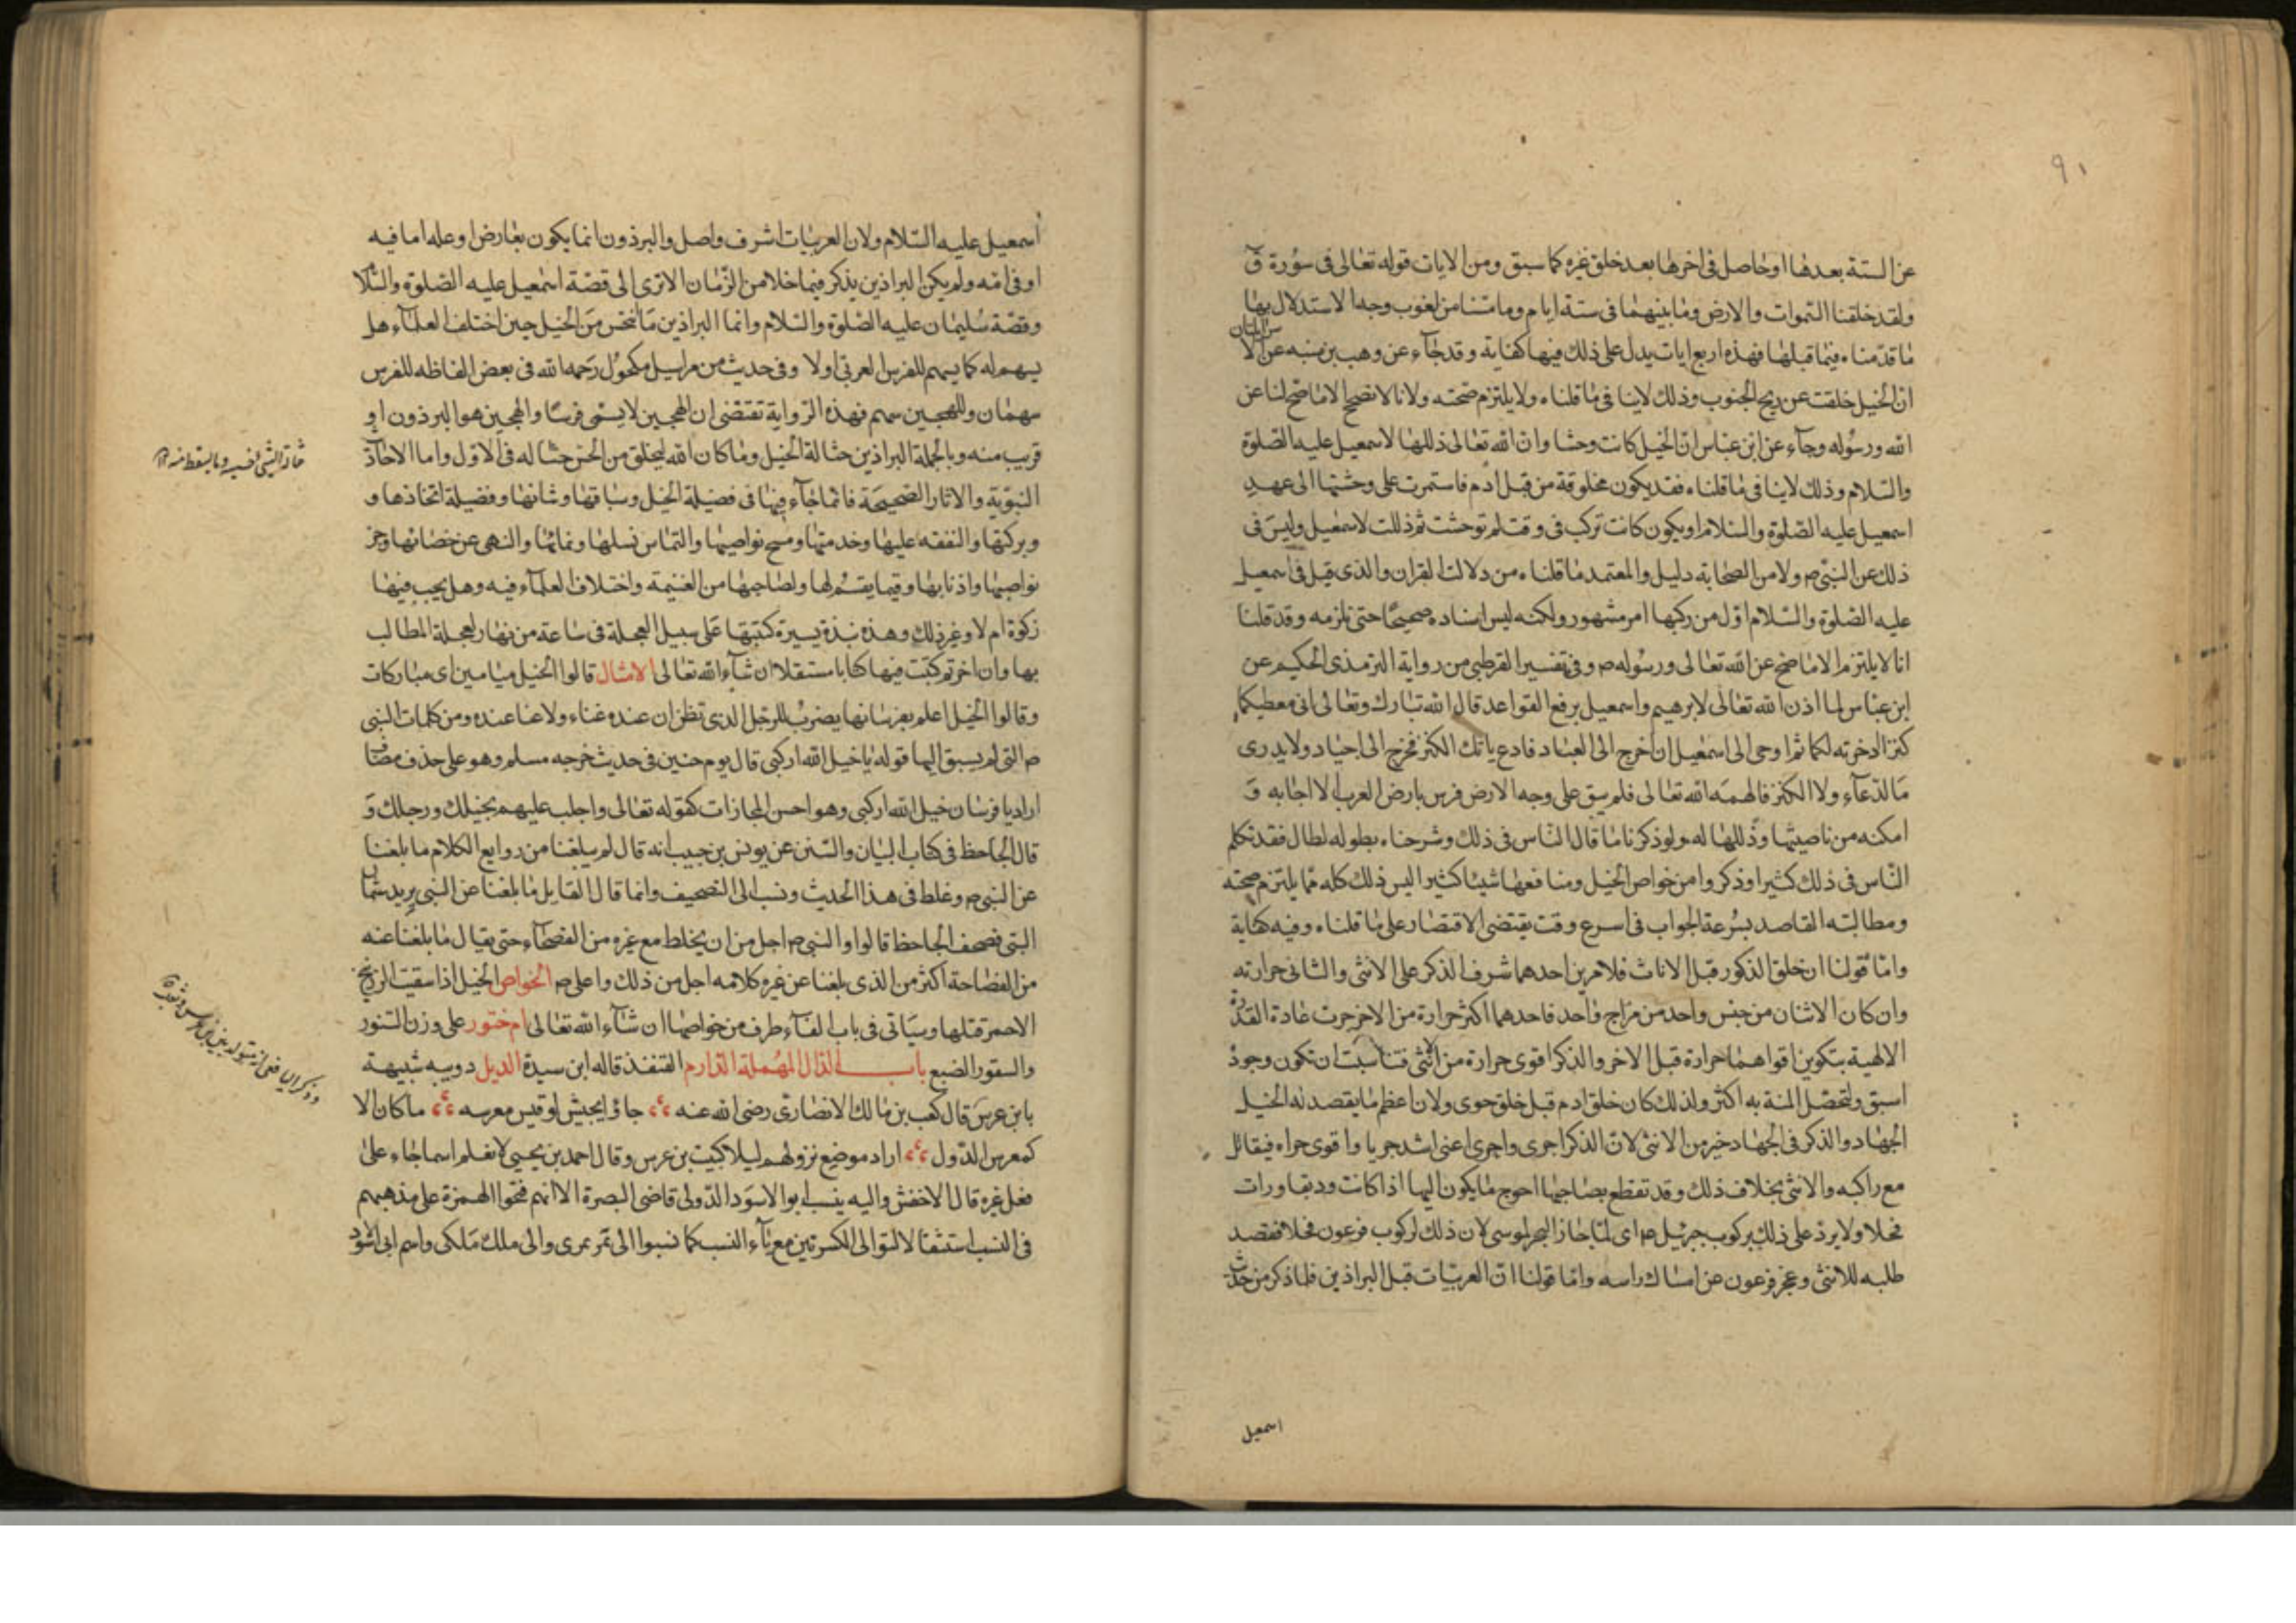 ٩١
عن الستة بعدها او حاصل فى اخرها بعد خلق غيره كما سبق ومن الايات قوله تعالى فى سورة ق
ولقد خلقنا السموات والارض وما بينهما فى ستة ايام وما مسنا من لغوب وجه الاستدلال بها
ما قدمناه فيما قبلها فهذه اربع ايات يدل على ذلك فيها كفاية وقد جاء عن وهب بن منبه عن الا
ان الخيل خلقت عن ريح الجنوب وذلك لاينافى ما قلناه ولايلتزم صحته ولانا لانصحح الا ماصح لنا عن
الله ورسوله وجاء عن ابن عباس ان الخيل كانت وحشا وان الله تعالى ذللها لاسمعيل عليه الصلوة
والسلام وذلك لاينافى ما قلناه فقد يكون مخلوقة من قبل ادم فاستمرت على وحشتها الى عهد
اسمعيل عليه الصلوة والسلام او يكون كانت تركب فى وقت ثم توحشت ثم ذللت لاسمعيل وليس فى
ذلك عن النبى ص ولا من الصحابة دليل والمعتمد ما قلناه من دلالة القران والذى قيل فى اسمعيل
عليه الصلوة والسلام اول من ركبها امر مشهور ولكنه ليس اسناده صحيحا حتى نلزمه وقد قلنا
انا لايلتزم الا ماصح عن الله تعالى ورسوله ص وفى تفسير القرطبى من رواية الترمذى الحكيم عن
ابن عباس لما اذن الله تعالى لابرهيم واسمعيل برفع القواعد قال الله تبارك وتعالى انى معطيكما
كنزا ادخرته لكما ثم اوحى الى اسمعيل ان اخرج الى العباد فادع ياتك الكنز فخرج الى اجياد ولايدرى
ما الدعاء ولا الكنز فالهمه الله تعالى فلم يبق على وجه الارض فرس بارض العرب الا اجابه و
امكنه من ناصيتها وذللها له ولو ذكرنا ما قال الناس فى ذلك وشرحناه بطوله لطال فقد تكلم
الناس فى ذلك كثيرا وذكروا من خواص الخيل ومنافعها شيئا كثيرا ليس ذلك كله مما يلتزم صحته
ومطالبته القاصد بسرعة الجواب فى اسرع وقت يقتضى الاقتصار على ما قلناه وفيه كفاية
واما قولنا ان خلق الذكور قبل الاناث فلامرين احدهما شرف الذكر على الانثى والثانى حرارته
وان كان الاثنان من جنس واحد من مزاج واحد فاحدهما اكثر حرارة من الاخر جرت عادة القدرة
الالهية بتكوين اقواهما حرارة قبل الاخر والذكر اقوى حرارة من الانثى فناسبت ان تكون وجوده
اسبق ولتحصل المنة به اكثر ولذلك كان خلق ادم قبل خلق حوى ولان اعظم ما يقصد له الخيل
الجهاد والذكر فى الجهاد خير من الانثى لان الذكر اجرى واجرى اعنى اشد جريا واقوى جراه فيقاتل
مع راكبه والانثى بخلاف ذلك وقد تقطع بصاحبها احوج ما يكون اليها اذا كانت وديقا ورات
فحلا ولايرد على ذلك بركوب جبريل ص اى لما جاز البحر لموسى لان ذلك لركوب فرعون فحلا فقصد
طلبه للانثى وعجز فرعون عن امساك راسه واما قولنا ان العربيات قبل البراذين فلما ذكر من حديث
اسمعيل
اسمعيل عليه السلام ولان العربيات اشرف واصل والبرذون انما يكون بعارض او عله اما فيه
او فى امه ولم يكن البراذين يذكر فيما خلا من الزمان الا ترى الى قصة اسمعيل عليه الصلوة والسلا
وقصة سليمان عليه الصلوة والسلام وانما البراذين ما انحس من الخيل حين اختلف العلماء هل
يسهم له كما يسهم للفرس العربى او لا وفى حديث من مراسيل مكحول رحمه الله فى بعض الفاظه للفرس
سهمان وللهجين سهم فهذه الرواية تقتضى ان الهجين لايسمى فرسا والهجين هو البرذون او
قريب منه وبالجملة البراذين حثالة الخيل وما كان الله ليخلق من الحسن حثاله فى الاول واما الاحاد
النبوية والاثار الصحيحة فانما جاء فيها فى فضيلة الخيل وسباقها وشانها وفضيلة اتخاذها و
وبركتها والنفقه عليها وخدمتها ومسح نواصيها والتماس نسلها ونمائها والنهى عن خصائها وجز
نواصيها واذنابها وفيما يقسم لها ولصاحبها من الغنيمة واختلاف العلماء فيه وهل يجب فيها
زكوة ام لا وغير ذلك وهذه نبذة يسيرة كتبتها على سبيل العجلة فى ساعة من نهار لعجلة المطالب
بها وان اخرتم كتبت فيها كتابا مستقلا ان شاء الله تعالى الامثال قالوا الخيل ميامين اى مباركات
وقالوا الخيل اعلم بفرسانها يضرب للرجل الذى تظن ان عنده غناء ولا غنا عنده ومن كلمات النبى
ص التى لم يسبق اليها قوله يا خيل الله اركبى قال يوم حنين فى حديث خرجه مسلم وهو على حذف مضاف
اراد يا فرسان خيل الله اركبى وهو احسن المجازات كقوله تعالى واجلب عليهم بخيلك ورجلك و
قال الجاحظ فى كتاب البيان والسنن عن يونس بن حبيب انه قال لم يبلغنا من روايع الكلام ما بلغنا
عن النبى ص وغلط فى هذا الحديث ونسب الى التصحيف وانما قال القايل ما بلغنا عن النبى يريد عثمان
البتى فصحف الجاحظ قالوا والنبى ص اجل من ان يخلط مع غيره من الفصحاء حتى يقال ما بلغنا عنه
من الفصاحة اكثر من الذى بلغنا عن غيره كلامه اجل من ذلك واعلى ص الخواص الخيل اذا سقيت الزرنيخ
الاحمر قتلها وسياتى فى باب الفاء طرف من خواصها ان شاء الله تعالى ام ختور على وزن التنور
والسقور الضبع باب الدال المهملة الدارم القنفذ قاله ابن سيدة الديل دويبه شبيهة
بابن عرس قال كعب بن مالك الانصارى رضى الله عنه جاؤ ابجيش لو قيس معرسه ما كان الا
كمعرس الدول اراد موضع نزولهم ليلا كبيت بن عرس وقال احمد بن يحيى لا نعلم اسما جاء على
فعل غيره قال الاخفش واليه ينسب ابو الاسود الدولى قاضى البصرة الا انهم فتحوا الهمزة على مذهبهم
فى النسب استثقالا لتوالى الكسرتين مع ياء النسب كما نسبوا الى نمر نمرى والى ملك ملكى واسم ابى الاسود